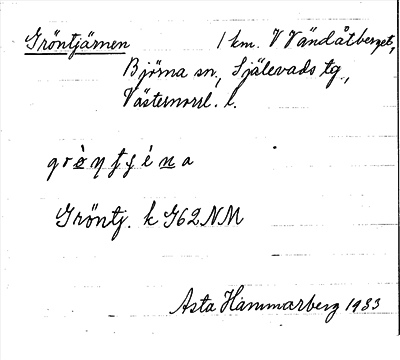 Gröntjärnen 1 km. V Vändåtberget,
Björna sn., Själevads tg.,
Västernorrl. l.
Gröntj. k G62NM
Asta Hammarberg 1933